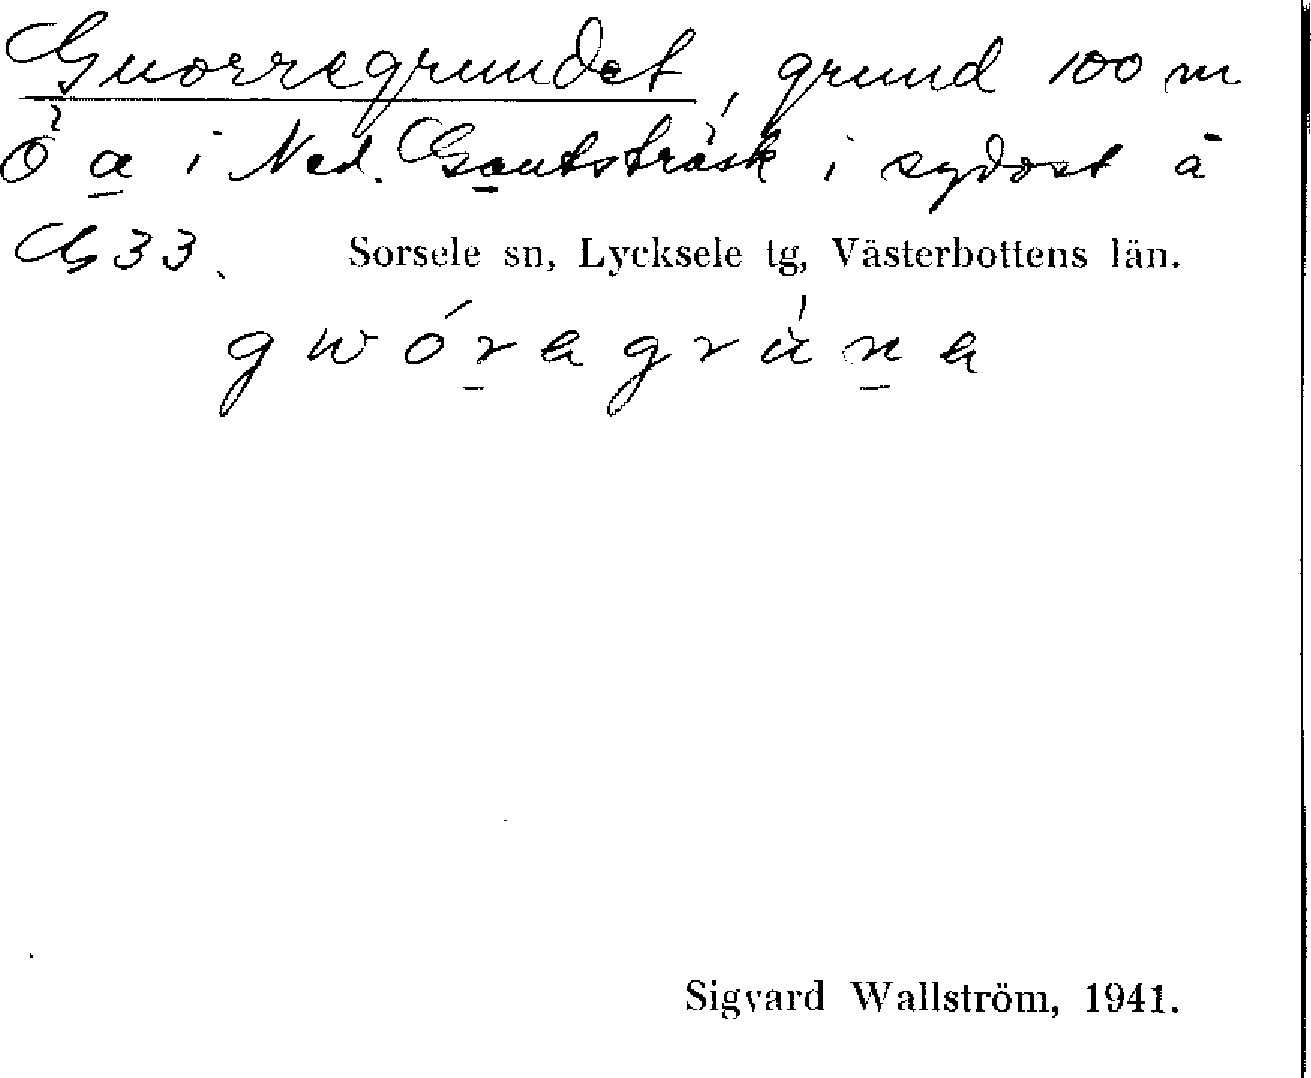 Guorregrundet, grund 100 m
Ö a i Ned. Gautsträsk i sydost å
G33. Sorsele sn, Lycksele tg, Västerbottens län.
gwóragrùna
Sigvard Wallström, 1941.